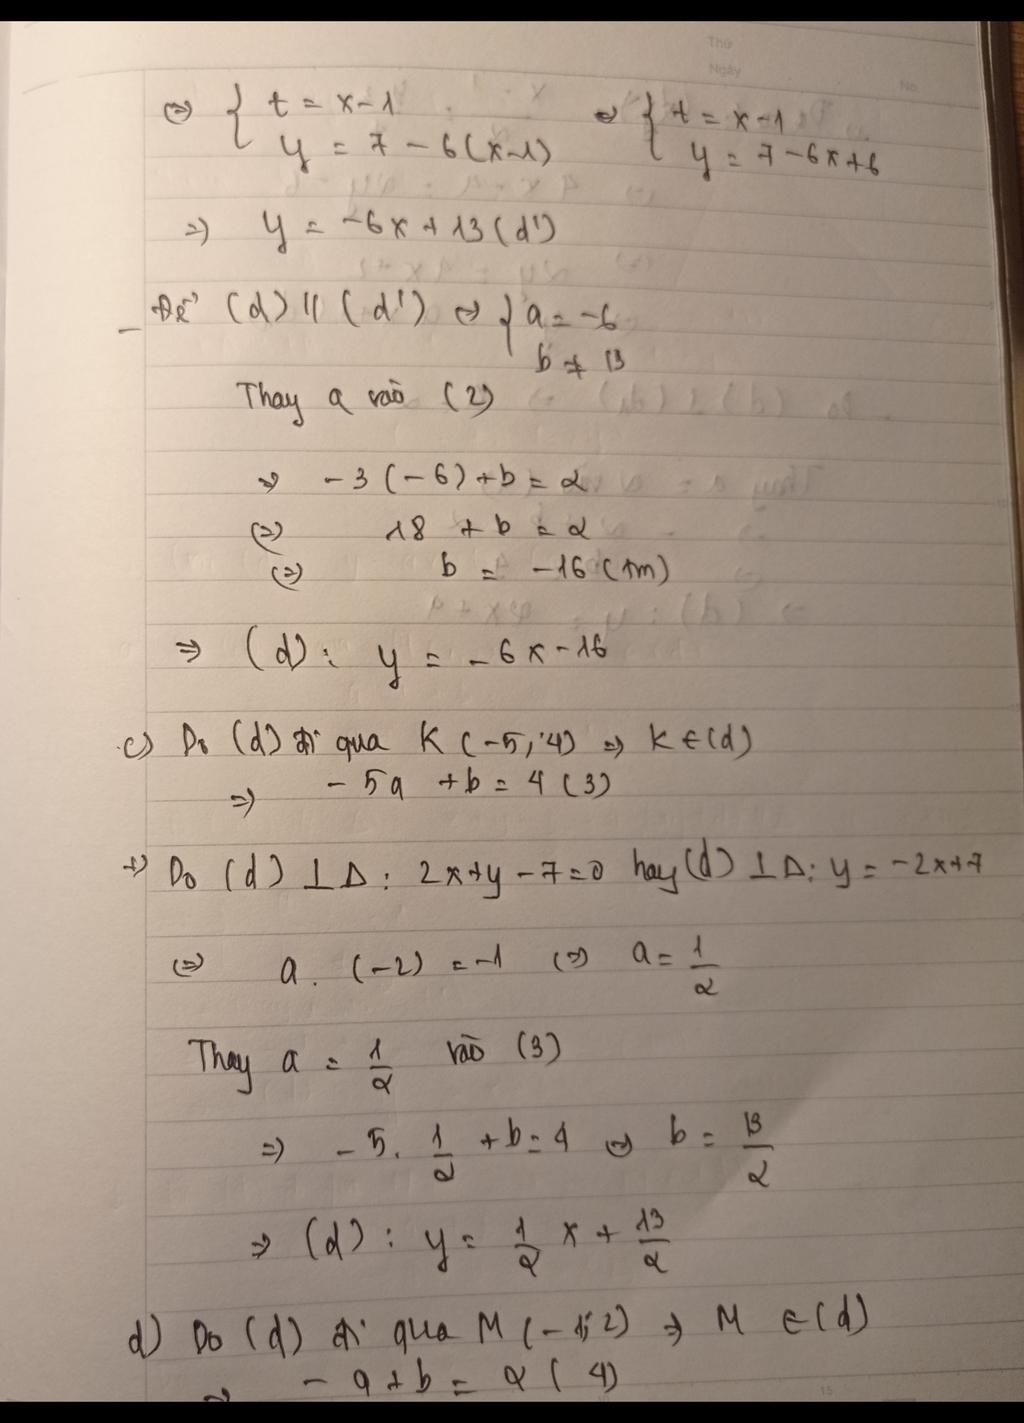 Thứ
Ngày
No.
⇔ { t = x-1 ⇔ { t = x-1
y = 7 - 6(x-1) y = 7-6x+6
⇒ y = -6x + 13 (d')
- Để (d) // (d') ⇔ { a = -6
b ≠ 13
Thay a vào (2)
⇒ -3(-6)+b = 2
⇔ 18 + b = 2
⇔ b = -16 (tm)
⇒ (d): y = -6x-16
c) Do (d) đi qua K (-5; 4) ⇒ K ∈ (d)
⇒ -5a + b = 4 (3)
+) Do (d) ⊥ Δ: 2x+y-7=0 hay (d) ⊥ Δ: y = -2x+7
⇔ a. (-2) = -1 ⇔ a = 1/2
Thay a = 1/2 vào (3)
⇒ -5. 1/2 + b = 4 ⇔ b = 13/2
⇒ (d): y = 1/2 x + 13/2
d) Do (d) đi qua M (-1; 2) ⇒ M ∈ (d)
⇒ -a+b = 2 (4)